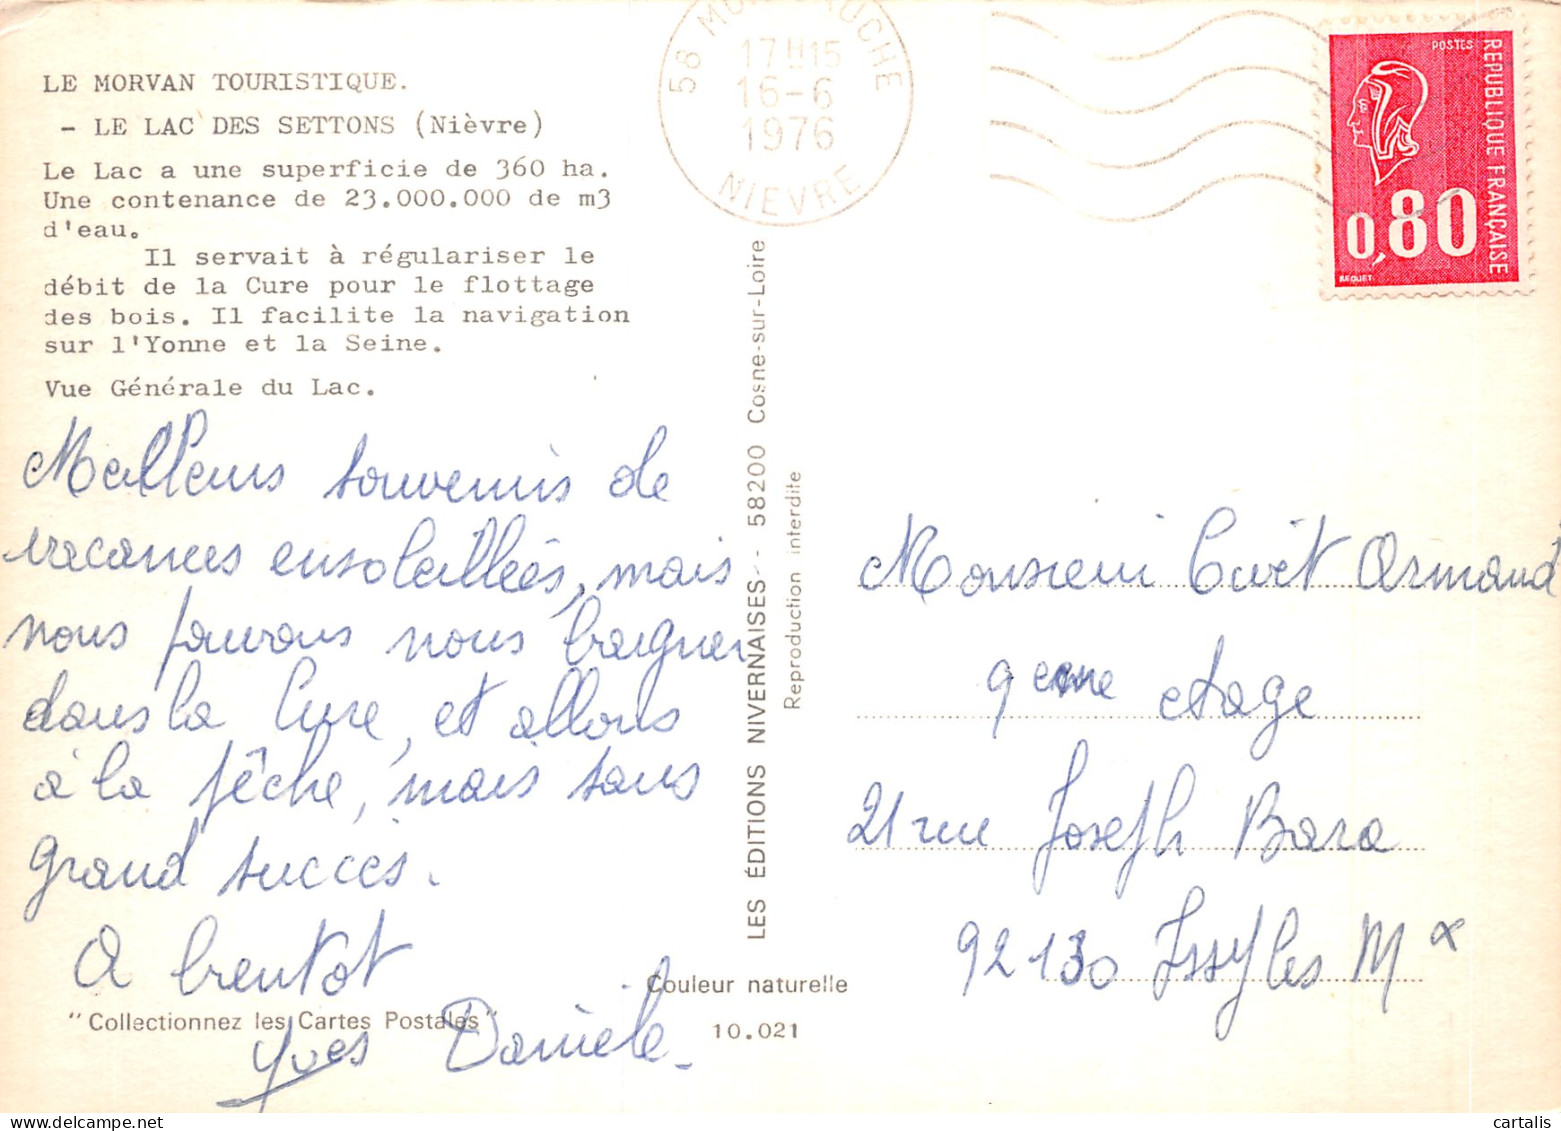 LE MORVAN TOURISTIQUE.
- LE LAC DES SETTONS (Nièvre)
Le Lac a une superficie de 360 ha.
Une contenance de 23.000.000 de m3
d'eau.
Il servait à régulariser le
débit de la Cure pour le flottage
des bois. Il facilite la navigation
sur l'Yonne et la Seine.
Vue Générale du Lac.
Meilleurs souvenirs de
vacances ensoleillées, mais
nous pouvons nous baigner
dans la Cure, et allons
à la pêche, mais sans
grand succès.
A bientôt
Yves Danièle
"Collectionnez les Cartes Postales"
LES ÉDITIONS NIVERNAISES - 58200 Cosne-sur-Loire
Reproduction interdite
Couleur naturelle
10.021
58
17H15
16-6
1976
NIEVRE
POSTES
REPUBLIQUE FRANÇAISE
0,80
BEQUET
Monsieur Armand
9eme etage
21 rue Joseph Bara
92130 Issy les Mx
cartalis